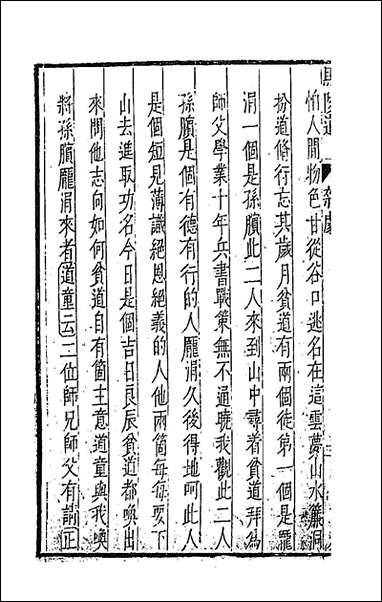 馬陵道 雜劇
怕人間物色甘從谷口逃名在這雲夢山水簾洞
扮道脩行忘其歲月貧道有兩個徒弟一個是龐
涓一個是孫臏此二人來到山中尋着貧道拜爲
師父學業十年兵書戰策無不通曉我觀此二人
孫臏是個有德有行的人龐涓久後得地呵此人
是個短見薄識絕恩絕義的人他兩箇每每要下
山去進取功名今日是個吉日良辰貧道都喚出
來問他志向如何貧道自有箇主意道童與我喚
將孫臏龐涓來者道童云二位師兄師父有請正